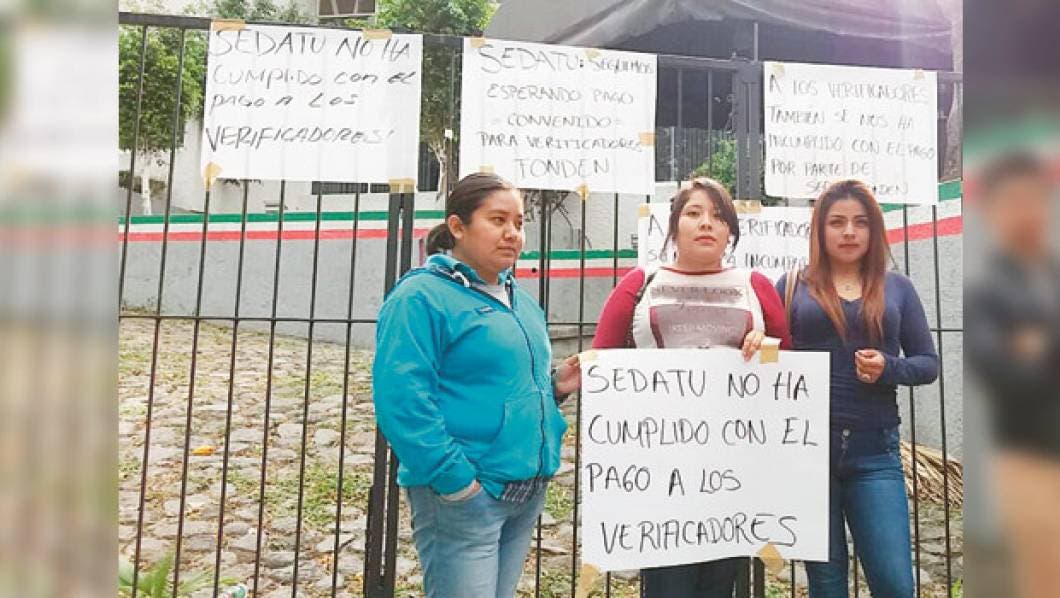 SEDATU NO HA
CUMPLIDO CON EL
PAGO A LOS
VERIFICADORES!
SEDATU: SEGUIMOS
ESPERANDO PAGO
CONVENIDO
PARA VERIFICADORES
FONDEN
A LOS VERIFICADORES
TAMBIÉN SE NOS HA
INCUMPLIDO CON EL PAGO
POR PARTE DE
A
INCUMP
NEVER LOOK
KEEP MOVING
SEDATU NO HA
CUMPLIDO CON EL
PAGO A LOS
VERIFICADORES